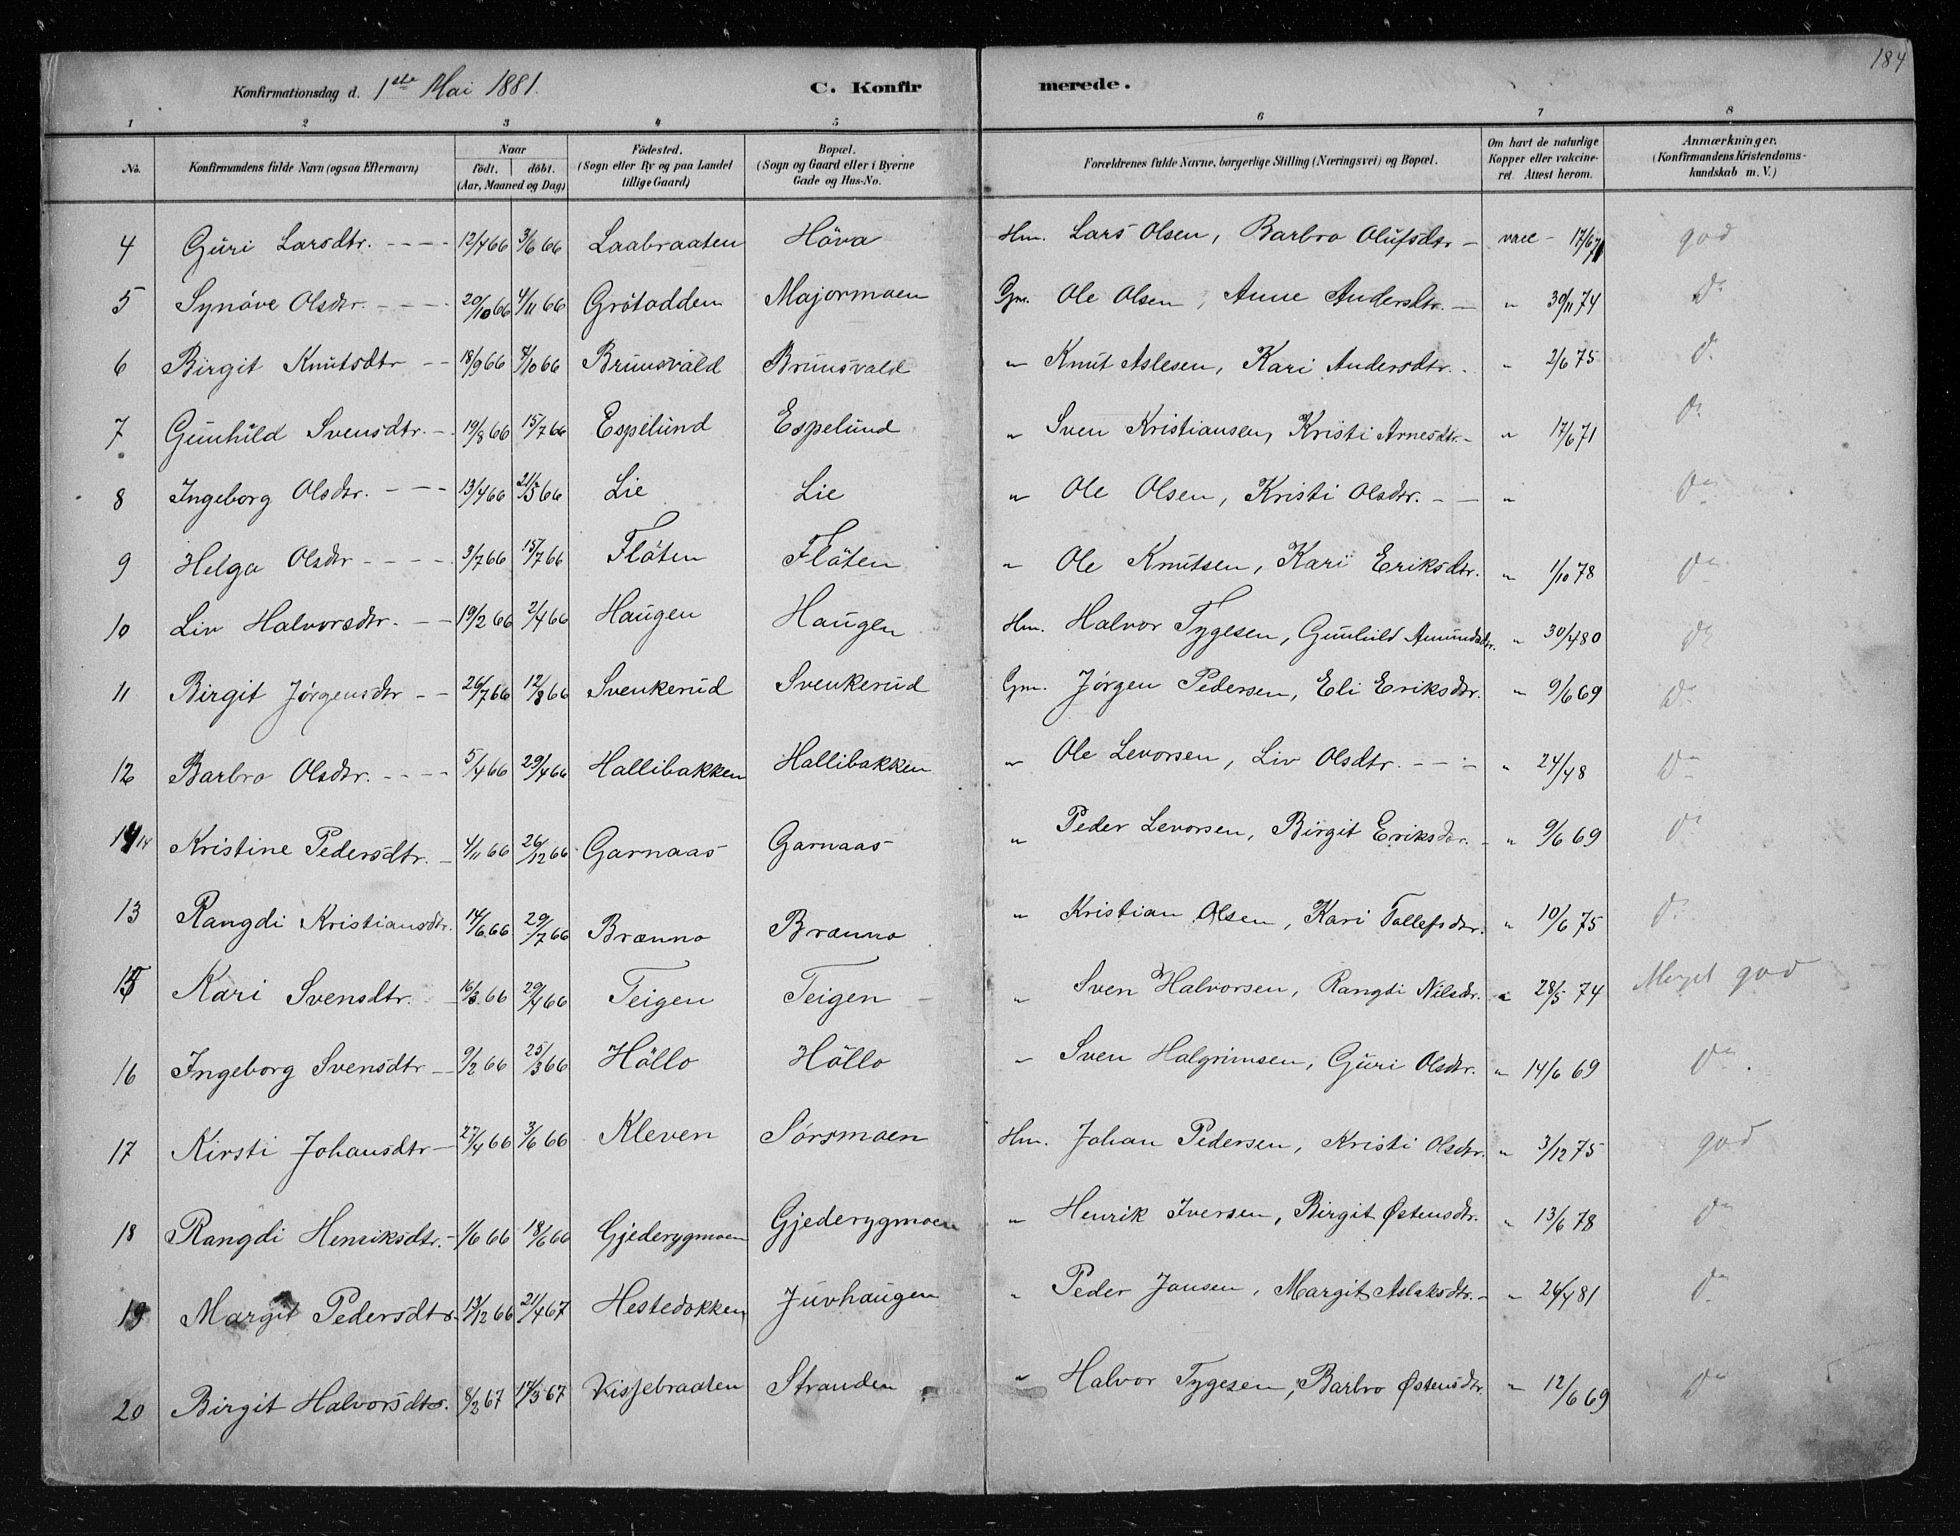 184
Konfirmationsdag d. 1ste Mai 1881. C. Konfirmerede.
1 2 3 4 5 6 7 8
No. Konfirmandens fulde Navn (ogsaa Efternavn) Naar født. døbt. (Aar, Maaned og Dag) Födested. (Sogn eller By og paa Landet tillige Gaard) Bopæl. (Sogn og Gaard eller i Byerne Gade og Hus-No. Forældrenes fulde Navne, borgerlige Stilling (Næringsvei) og Bopæl. Om havt de naturlige Kopper eller vakcineret Attest herom. Anmærkninger. (Konfirmandens Kristendomskundskab m. V.)
4 Guri Larsdtr. 12/4 66 3/6 66 Laabraaten Höva Hm. Lars Olsen, Barbro Olufsdtr vacc 17/6 71 god
5 Synöve Olsdtr. 20/10 66 4/11 66 Grötodden Majormoen Gm. Ole Olsen, Anne Andersdtr. " 30/11 74 Do
6 Birgit Knutsdtr 18/9 66 7/10 66 Brunsvald Brunsvald " Knut Aslesen, Kari Andersdtr. " 2/6 75 Do
7 Gunhild Svensdtr. 19/8 66 15/7 66 Espelund Espelund " Sven Kristiansen, Kristi Arnesdtr. " 17/6 71 Do
8 Ingeborg Olsdtr. 13/4 66 21/5 66 Lie Lie " Ole Olsen, Kristi Olsdtr. " Do
9 Helga Olsdtr 3/7 66 15/7 66 Flöten Flöten " Ole Knutsen, Kari Eriksdtr. " 1/10 78 Do
10 Liv Halvorsdtr. 19/2 66 2/4 66 Haugen Haugen Hm. Halvor Tygesen, Gunhild Amundsdtr. " 30/4 80 Do
11 Birgit Jørgensdtr 26/7 66 12/8 66 Svenkerud Svenkerud Gm. Jørgen Pedersen, Eli Eriksdtr. " 9/6 69 Do
12 Barbro Olsdtr. 5/4 66 29/4 66 Hallibakken Hallibakken " Ole Levorsen, Liv Olsdtr. " 24/48 Do
14 Kristine Pedersdtr. 4/11 66 26/12 66 Garnaas Garnaas " Peder Levorsen, Birgit Eriksdtr. " 9/6 69 Do
13 Rangdi Kristiansdtr. 14/6 66 29/7 66 Brænno Brænno " Kristian Olsen, Kari Tollefsdtr. " 10/6 75 Do
15 Kari Svensdtr. 16/3 66 29/4 66 Teigen Teigen " Sven Halvorsen, Rangdi Nilsdtr. " 28/5 74 Meget god
16 Ingeborg Svensdtr 9/2 66 25/3 66 Höllo Höllo " Sven Halgrimsen, Guri Olsdtr. " 14/6 69 Do
17 Kirsti Johansdtr 27/4 66 3/6 66 Kleven Sörsmoen Hm. Johan Pedersen, Kristi Olsdtr. " 3/12 75 god
18 Rangdi Henriksdtr. 1/6 66 18/6 66 Gjederygmoen Gjederygmoen " Henrik Iversen, Birgit Østensdtr. " 13/6 78 Do
19 Margit Pedersdtr. 13/12 66 21/4 67 Hestedokken Juvhaugen " Peder Jansen, Margit Aslaksdtr. " 26/4 81 Do
20 Birgit Halvorsdtr. 8/2 67 17/3 67 Kisjebraaten Stranden " Halvor Tygesen, Barbro Østensdtr. " 12/6 69 Do